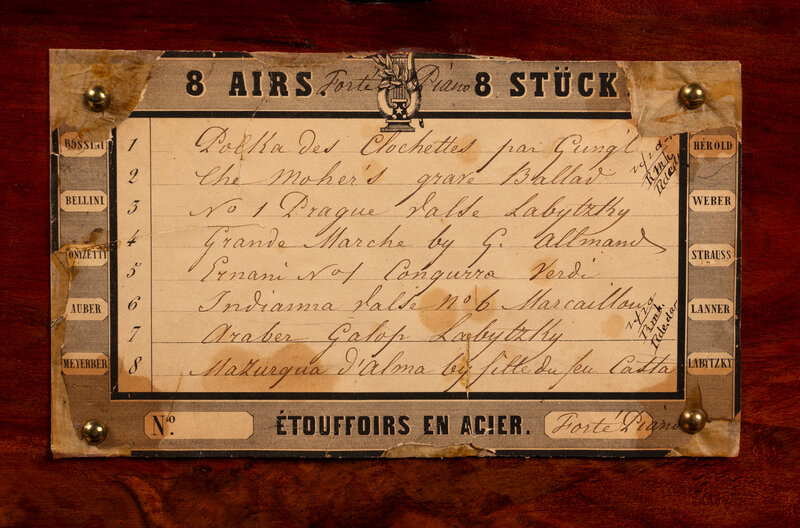 8 AIRS. Forté Piano 8 STÜCK.
ROSSINI
BELLINI
DONIZETTI
AUBER
MEYERBER
1 Polka des Clochettes par Gung'l
2 the Moher's grave Ballad
3 No 1 Prague Valse Labytzky
4 Grande Marche by G. Allmand
5 Ernani No 1 Congurra Verdi
6 Indianna Valse No 6 Marcaillou
7 Araber Galop Labytzky
8 Mazurqua d'Alma by fille du feu Casta
HÉROLD
WEBER
STRAUSS
LANNER
LABYTZKY
No. ÉTOUFFOIRS EN ACIER. Forté Piano